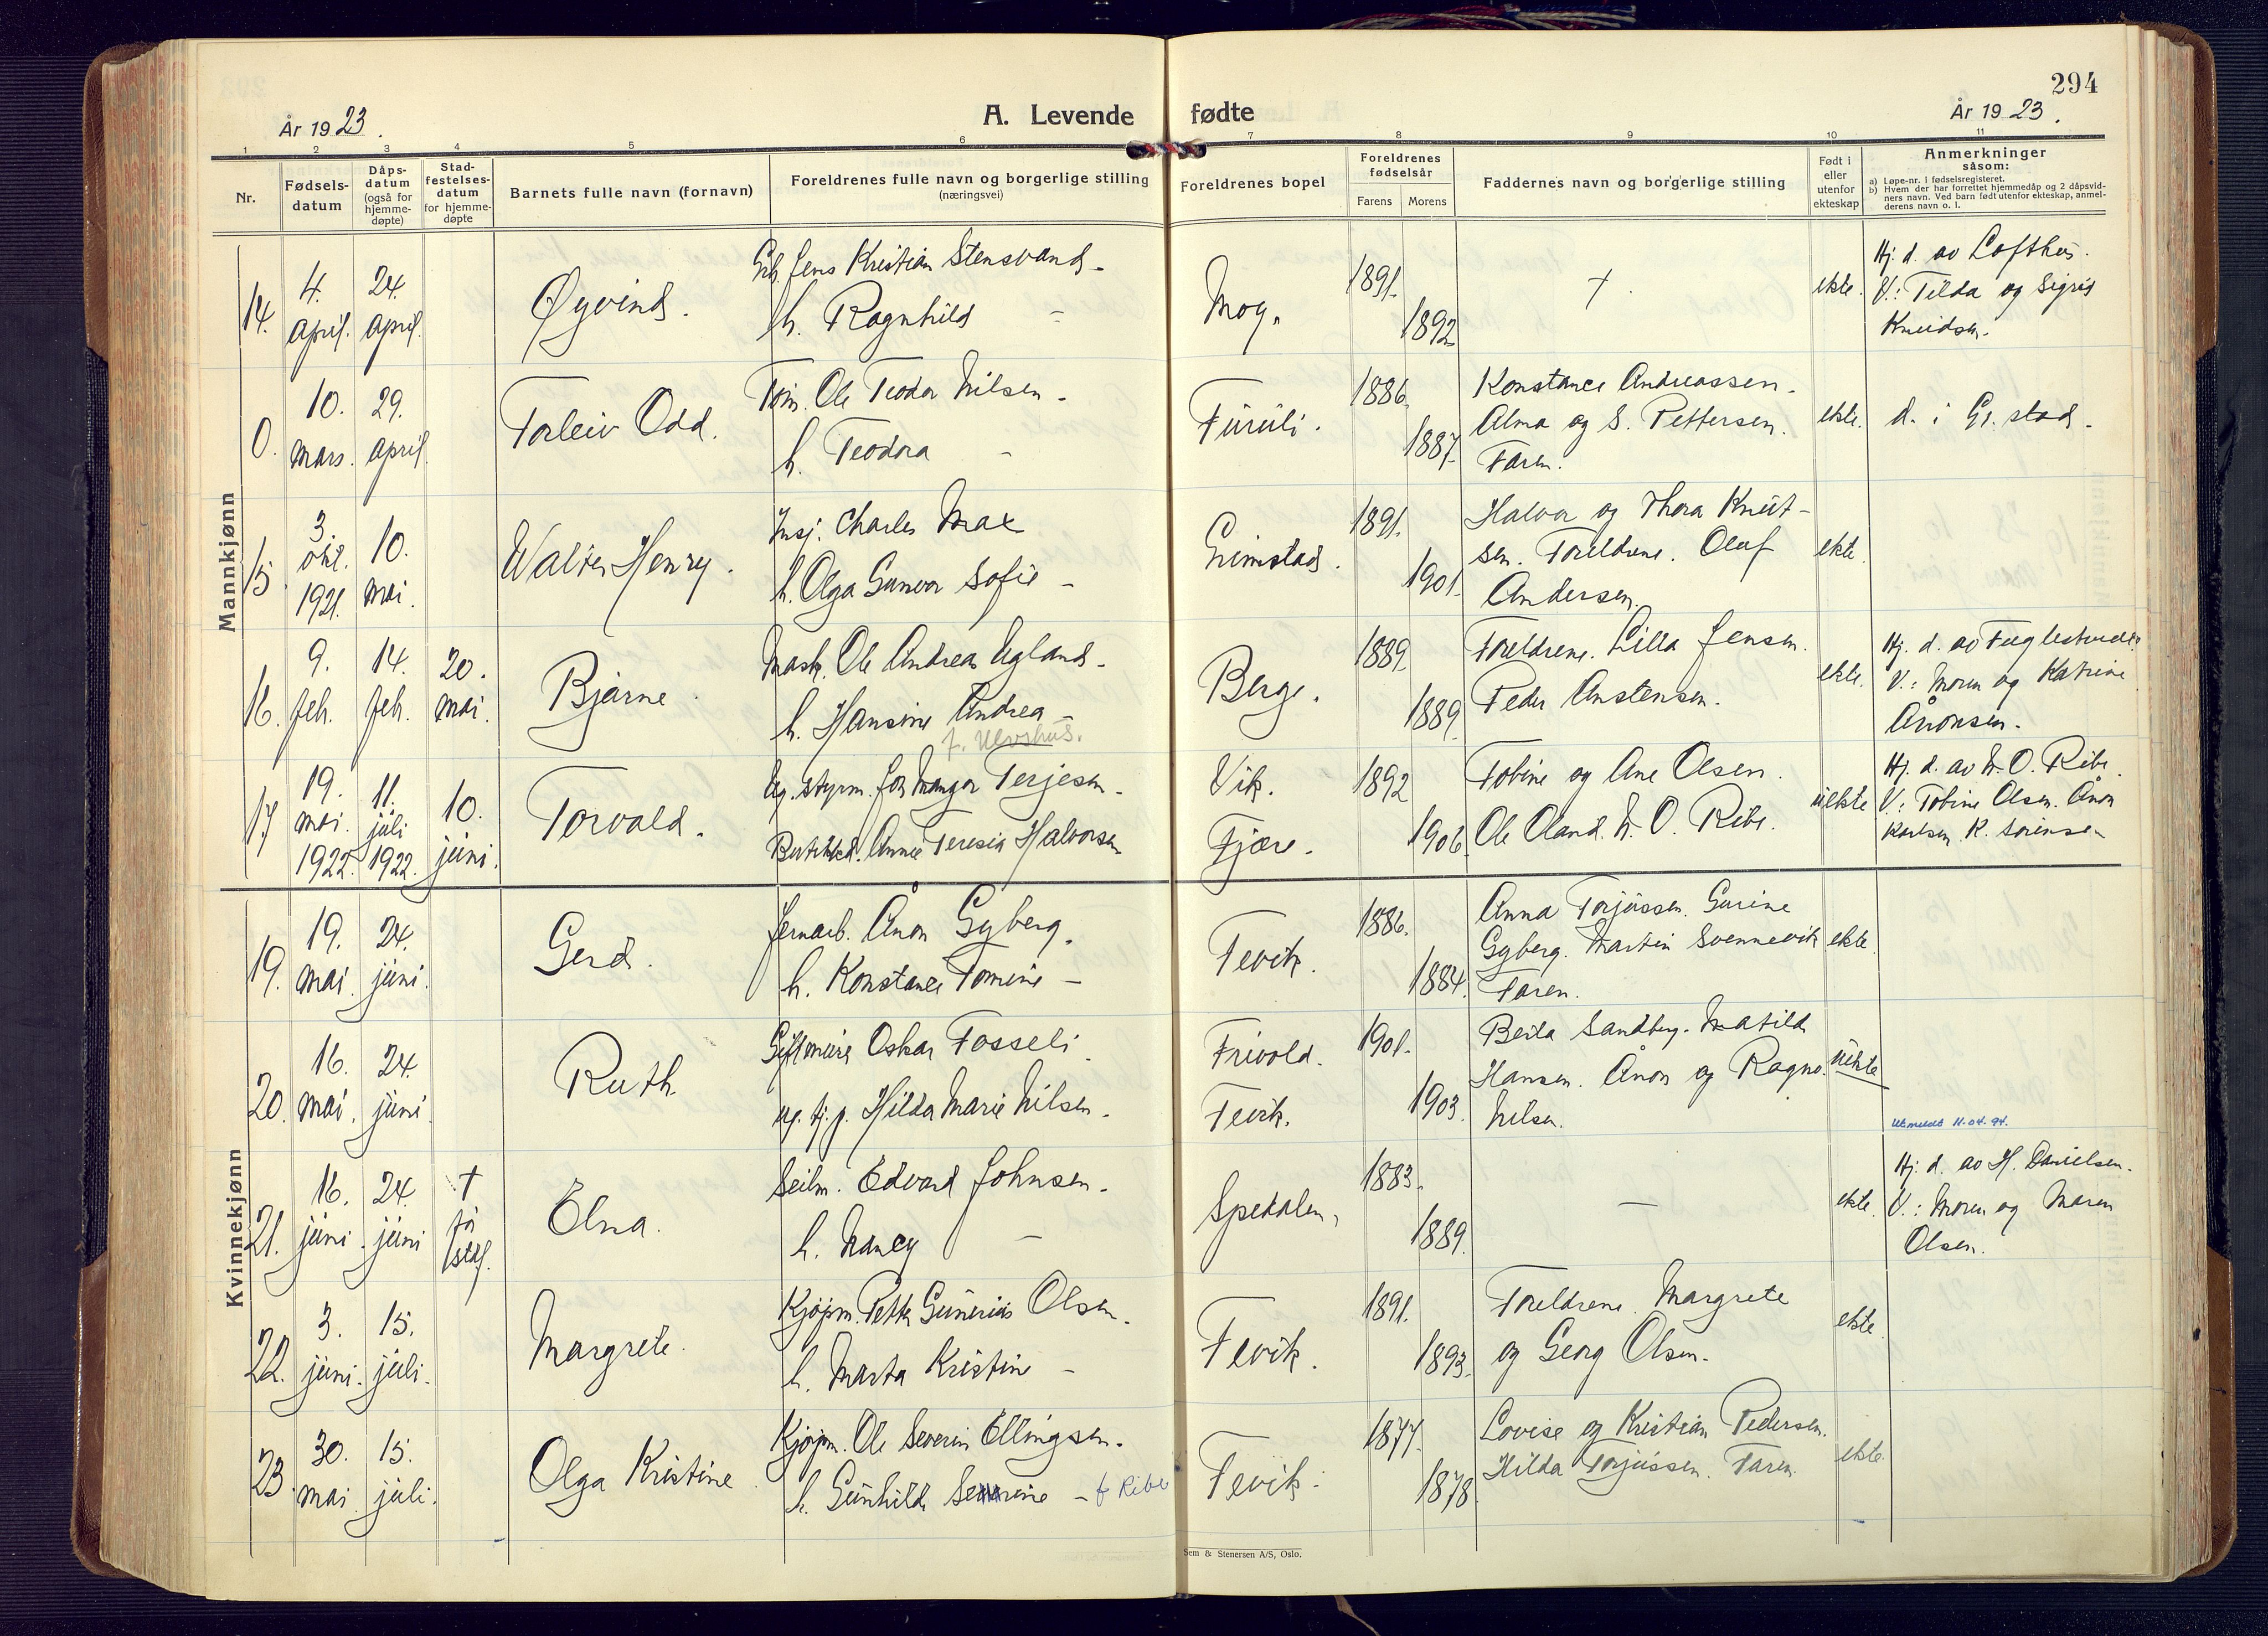 294
År 1923.
A. Levende fødte
År 1923.
1 2 3 4 5 6 7 8 9 10 11
Nr.
Fødsels-
datum
Dåps-
datum
(også for
hjemme-
døpte)
Stad-
festelses-
datum
for hjemme-
døpte
Barnets fulle navn (fornavn)
Foreldrenes fulle navn og borgerlige stilling
(næringsvei)
Foreldrenes bopel
Foreldrenes
fødselsår
Farens Morens
Faddernes navn og borgerlige stilling
Født i
eller
utenfor
ekteskap
Anmerkninger
såsom:
a) Løpe-nr. i fødselsregisteret.
b) Hvem der har forrettet hjemmedåp og 2 dåpsvid-
ners navn. Ved barn født utenfor ekteskap, anmel-
derens navn o. l.
Mannkjønn
14.
4.
april.
24.
april.
Øyvind.
Jens Kristian Stensvand -
h. Ragnhild -
Moy.
1891.
1892
†.
ekte.
Hj. d. av Lofthus.
V.: Tilda og Sigrid
Knudsen.
0.
10.
mars.
29.
april.
Torleiv Odd.
Tøm. Ole Teodor Nilsen -
h. Teodora -
Furuli.
1886.
1887.
Konstance Andreassen.
Alma og S. Pettersen.
Faren.
ekte.
d. i Gr.stad.
15
3.
okt.
1921.
10.
mai.
Walter Henry.
Insj. Charles Max
h. Olga Gunvor Sofie -
Grimstad.
1891.
1901.
Halvor og Thora Knut-
sen. Foreldrene. Olaf
Andersen.
ekte.
16.
9.
feb.
14.
feb.
20.
mai.
Bjarne.
Mask. Ole Andreas Ugland -
h. Hansine Andrea -
f. Ulvshus.
Berge.
1889.
1889
Foreldrene. Lilla Jensen.
Peder Anstensen.
ekte.
Hj. d. av Fuglestvedt.
V.: Moren og Katrine
Ånonsen.
17
19.
mai.
1922.
11.
juli
1922.
10.
juni.
Torvald.
Ug. styrm. Joh Mangor Terjesen.
Anne Teresia Halvorsen
Vik.
Fjære.
1892
1906.
Tobine og Ane Olsen.
Ole Oland. N. O. Ribe.
uekte
Hj. d. av N. O. Ribe.
V.: Tobine Olsen. Ånon
Karlsen. K. Sørensen
Kvinnekjønn
19.
19.
mai.
24.
juni.
Gerd.
Jernarb. Ånon Gyberg.
h. Konstance Tomine -
Fevik.
1886.
1884.
Anna Torjussen. Gurine
Gyberg. Martin Svennevik
Faren.
ekte.
20.
16.
mai.
24.
juni.
Ruth.
Oskar Fosseli.
ug. tj.p. Hilda Marie Nilsen.
Frivold.
Fevik.
1901.
1903.
Berta Sandberg. Matild
Hansen. Ånon og Ragna.
Nilsen.
uekte
Utmeldt 11.04.94.
21.
16.
juni.
24
juni
†
før
staf.
Elna.
Seilm. Edvard Johnsen.
h. Nancy -
Spedalen.
1883.
1889.
—
ekte.
Hj. d. av H. Danielsen.
V.: Moren og Maren
Olsen.
22.
3.
juni.
15.
juli.
Margrete.
Kjøpm. Petter Gunerius Olsen.
h. Marta Kristine -
Fevik.
1891.
1893.
Foreldrene. Margrete
og Georg Olsen.
ekte.
23
30.
mai
15.
juli.
Olga Kristine
Kjøpm. Ole Severin Ellingsen.
h. Gunhild Severine - f Ribe
Fevik.
1877.
1878.
Lovise og Kristian Pedersen.
Hilda Torjussen. Faren.
ekte.
Sem & Stenersen A/S, Oslo.